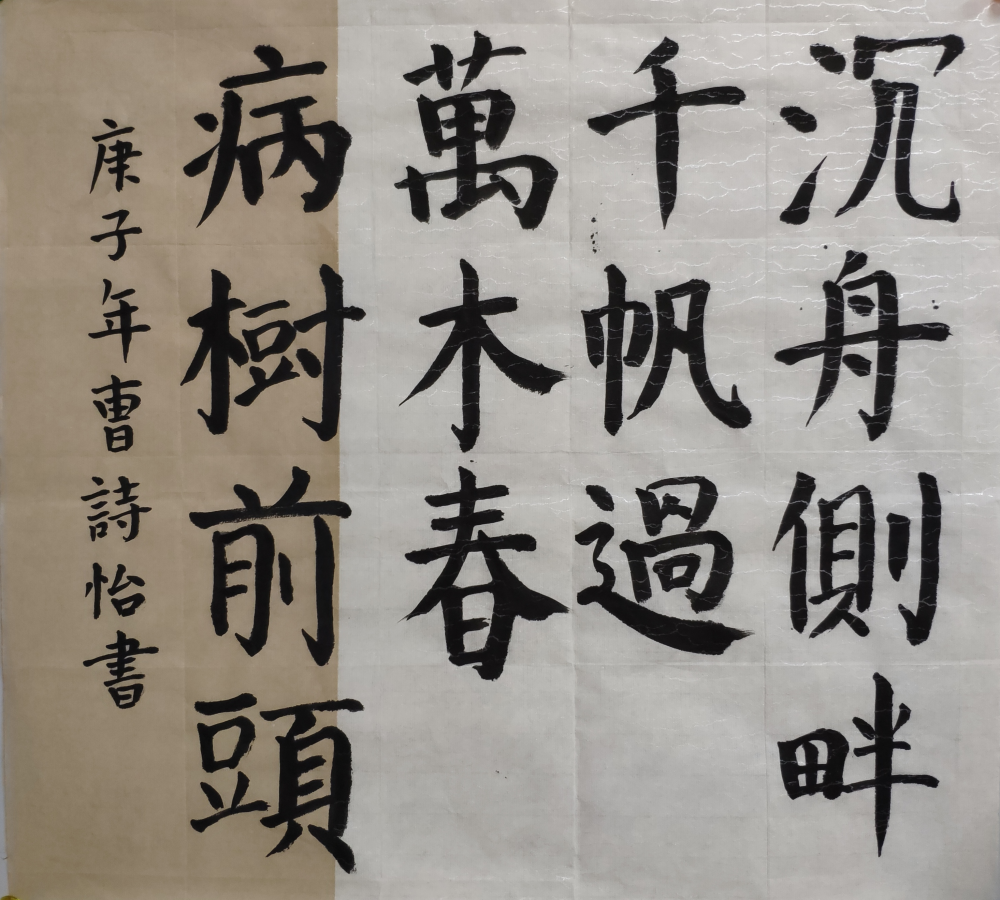 沉舟側畔
千帆過
病樹前頭
萬木春
庚子年曹詩怡書